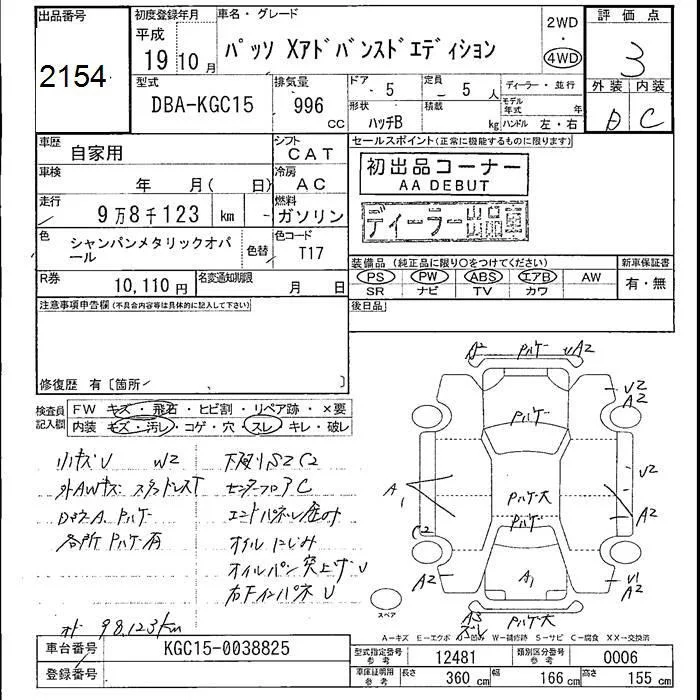 出品番号
2154
初度登録年月
平成
19年10月
車名・グレード
パッソ Xアドバンスドエディション
2WD
・
4WD
評価点
3
型式
DBA-KGC15
排気量
996
CC
ドア
- 5
定員
- 5 人
形状
ハッチB
積載
kg
ディーラー・並行
モデル年式 年
ハンドル 左・右
外装 内装
D C
車歴
自家用
シフト
CAT
車検
年 月( 日)
冷房
AC
走行
9万8千123 km -
燃料
ガソリン
色
シャンパンメタリックオパール
色替
色コード
T17
R券
10,110円
名変通知期限
月 日
セールスポイント(正常に機能するものに限ります)
初出品コーナー
AA DEBUT
ディーラー出品車
装備品(純正品に限り○をつけてください)
新車保証書
PS PW ABS エアB AW
SR ナビ TV カワ
有・無
後日品
注意事項申告欄(不具合内容等は具体的に記入して下さい)
修復歴 有〔箇所 〕
検査員記入欄
FW キズ・飛石・ヒビ割・リペア跡・×要
内装 キズ・汚レ・コゲ・穴・スレ・キレ・破レ
小キズU W2
外AWキズ スタッドレスT
各所 P.ハゲ有
下廻りS2 C2
センターフロアC
エンドパネル歪み
オイルにじみ
オイルパン突上ゲU
右Fインパネ U
オド 98,123km
A2 P.ハゲ UA2
P.ハゲ
U2
A2
U2
A1
P.ハゲ大
P.ハゲ
A2
C2
A2
A1
U1
A2
A3
P.ハゲ大
スペア
A-キズ E-エクボ U-凹み W-補修跡 S-サビ C-腐食 XX-交換済
車台番号
KGC15-0038825
登録番号
型式指定番号
参考
12481
類別区分番号
参考
0006
車庫証明用
参考
長さ
360 cm
幅
166 cm
高さ
155 cm